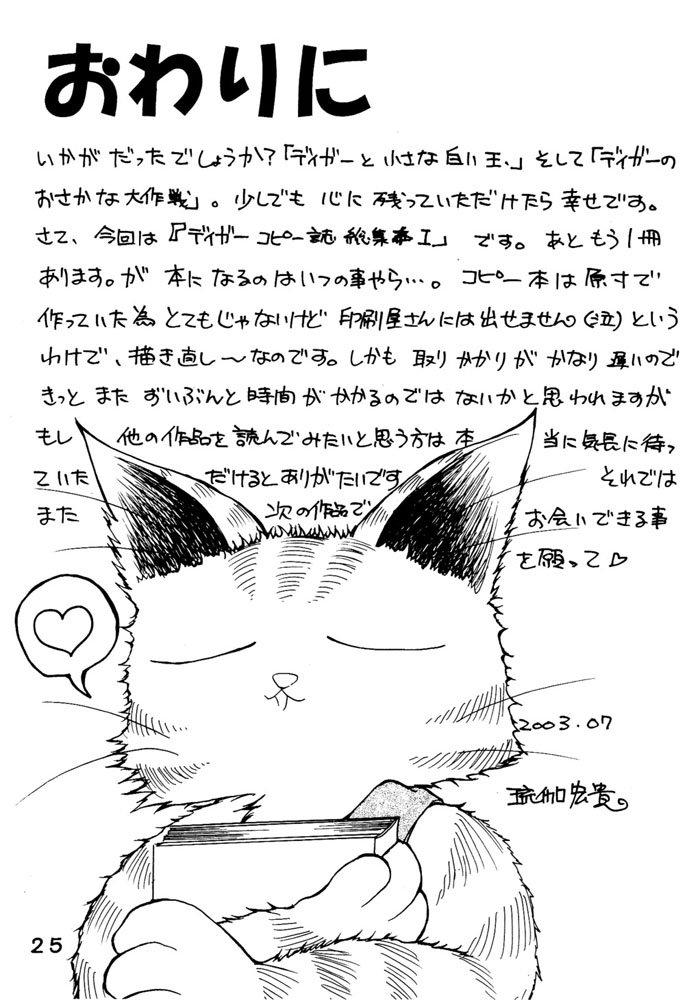 おわりに
いかが だったでしょうか?「ディガーと小さな白い玉、」そして「ディガーの
おさかな大作戦」。少しでも 心に 残っていただけたら 幸せです。
さて、今回は『ディガー コピー誌 総集本 I』 です。あともう1冊
あります。が 本になるのはいつの事やら…。コピー本は原寸で
作っていた為 とてもじゃないけど 印刷屋さんには出せません(泣)という
わけで、描き直し〜なのです。しかも 取りかかりが かなり 遅いので
きっと また ずいぶんと時間がかかるのでは ないかと思われますが
もし 他の作品を読んでみたいと思う方は 本 当に気長に待っ
ていた だけるとありがたいです それでは
また 次の作品で お会いできる事
を願って♡
2003.07
琉伽宏貴。
25